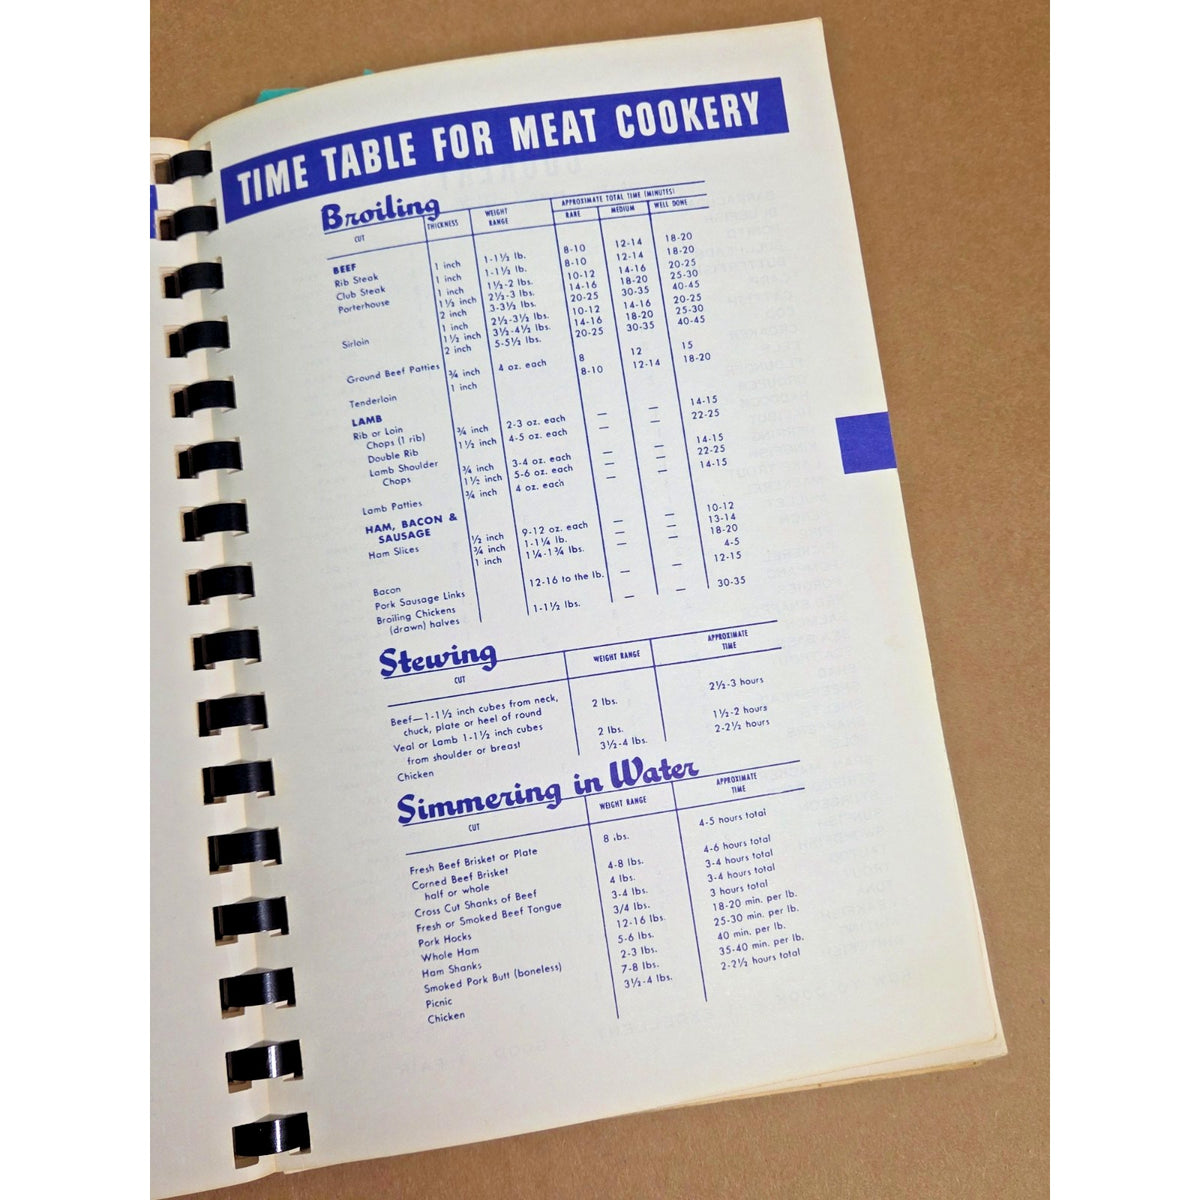 TIME TABLE FOR MEAT COOKERY
Broiling
APPROXIMATE TOTAL TIME (MINUTES)
CUT THICKNESS WEIGHT RANGE RARE MEDIUM WELL DONE
BEEF
Rib Steak 1 inch 1-1½ lb. 8-10 12-14 18-20
Club Steak 1 inch 1-1½ lb. 8-10 12-14 18-20
Porterhouse 1 inch 1½-2 lbs. 10-12 14-16 20-25
1½ inch 2½-3 lbs. 14-16 18-20 25-30
2 inch 3-3½ lbs. 20-25 30-35 40-45
Sirloin 1 inch 2½-3½ lbs. 10-12 14-16 20-25
1½ inch 3½-4½ lbs. 14-16 18-20 25-30
2 inch 5-5½ lbs. 20-25 30-35 40-45
Ground Beef Patties ¾ inch 4 oz. each 8 12 15
Tenderloin 1 inch 8-10 12-14 18-20
LAMB
Rib or Loin
Chops (1 rib) ¾ inch 2-3 oz. each — — 14-15
Double Rib 1½ inch 4-5 oz. each — — 22-25
Lamb Shoulder
Chops ¾ inch 3-4 oz. each — — 14-15
1½ inch 5-6 oz. each — — 22-25
Lamb Patties ¾ inch 4 oz. each — — 14-15
HAM, BACON &
SAUSAGE
Ham Slices ½ inch 9-12 oz. each — — 10-12
¾ inch 1-1¼ lb. — — 13-14
1 inch 1¼-1¾ lbs. — — 18-20
Bacon 4-5
Pork Sausage Links 12-16 to the lb. — — 12-15
Broiling Chickens
(drawn) halves 1-1½ lbs. — — 30-35
Stewing
CUT WEIGHT RANGE APPROXIMATE TIME
Beef—1-1½ inch cubes from neck,
chuck, plate or heel of round 2 lbs. 2½-3 hours
Veal or Lamb 1-1½ inch cubes
from shoulder or breast 2 lbs. 1½-2 hours
Chicken 3½-4 lbs. 2-2½ hours
Simmering in Water
CUT WEIGHT RANGE APPROXIMATE TIME
Fresh Beef Brisket or Plate 8 lbs. 4-5 hours total
Corned Beef Brisket
half or whole 4-8 lbs. 4-6 hours total
Cross Cut Shanks of Beef 4 lbs. 3-4 hours total
Fresh or Smoked Beef Tongue 3-4 lbs. 3-4 hours total
Pork Hocks 3/4 lbs. 3 hours total
Whole Ham 12-16 lbs. 18-20 min. per lb.
Ham Shanks 5-6 lbs. 25-30 min. per lb.
Smoked Pork Butt (boneless) 2-3 lbs. 40 min. per lb.
Picnic 7-8 lbs. 35-40 min. per lb.
Chicken 3½-4 lbs. 2-2½ hours total